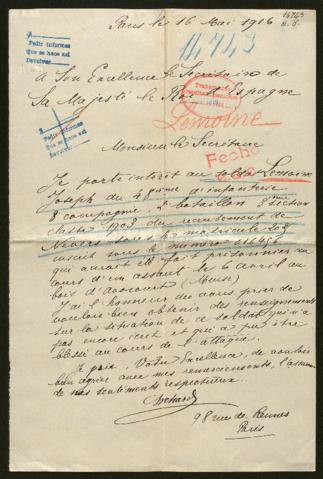 Paris le 16 Mai 1916
14743
14743
Pedir informes
que se hace así
Devolver
A Son Excellence le Secrétaire de
Sa Majesté le Roi d'Espagne
Lemoine
Pedir informes
que se hace así
Devolver
Monsieur le Secrétaire
Fecho
Je porte intérêt au soldat Lemoine
Joseph du 4 d'infanterie
8 compagnie 2 bataillon section
classe 1903 du recrutement de
Nevers sous le matricule
inscrit sous le numéro
qui aurait été fait prisonnier au
cours d'un assaut le 6 avril au
bois d'Avocourt (Meuse)
J'ai l'honneur de vous prier de
vouloir bien obtenir des renseignements
sur la situation de ce soldat qui n'a
pas encore écrit et qui a pu être
blessé au cours de l'attaque.
Je prie, Votre Excellence, de vouloir
bien agréer avec mes remerciements, l'assurance
de mes sentiments respectueux.
98 rue de Rennes
Paris